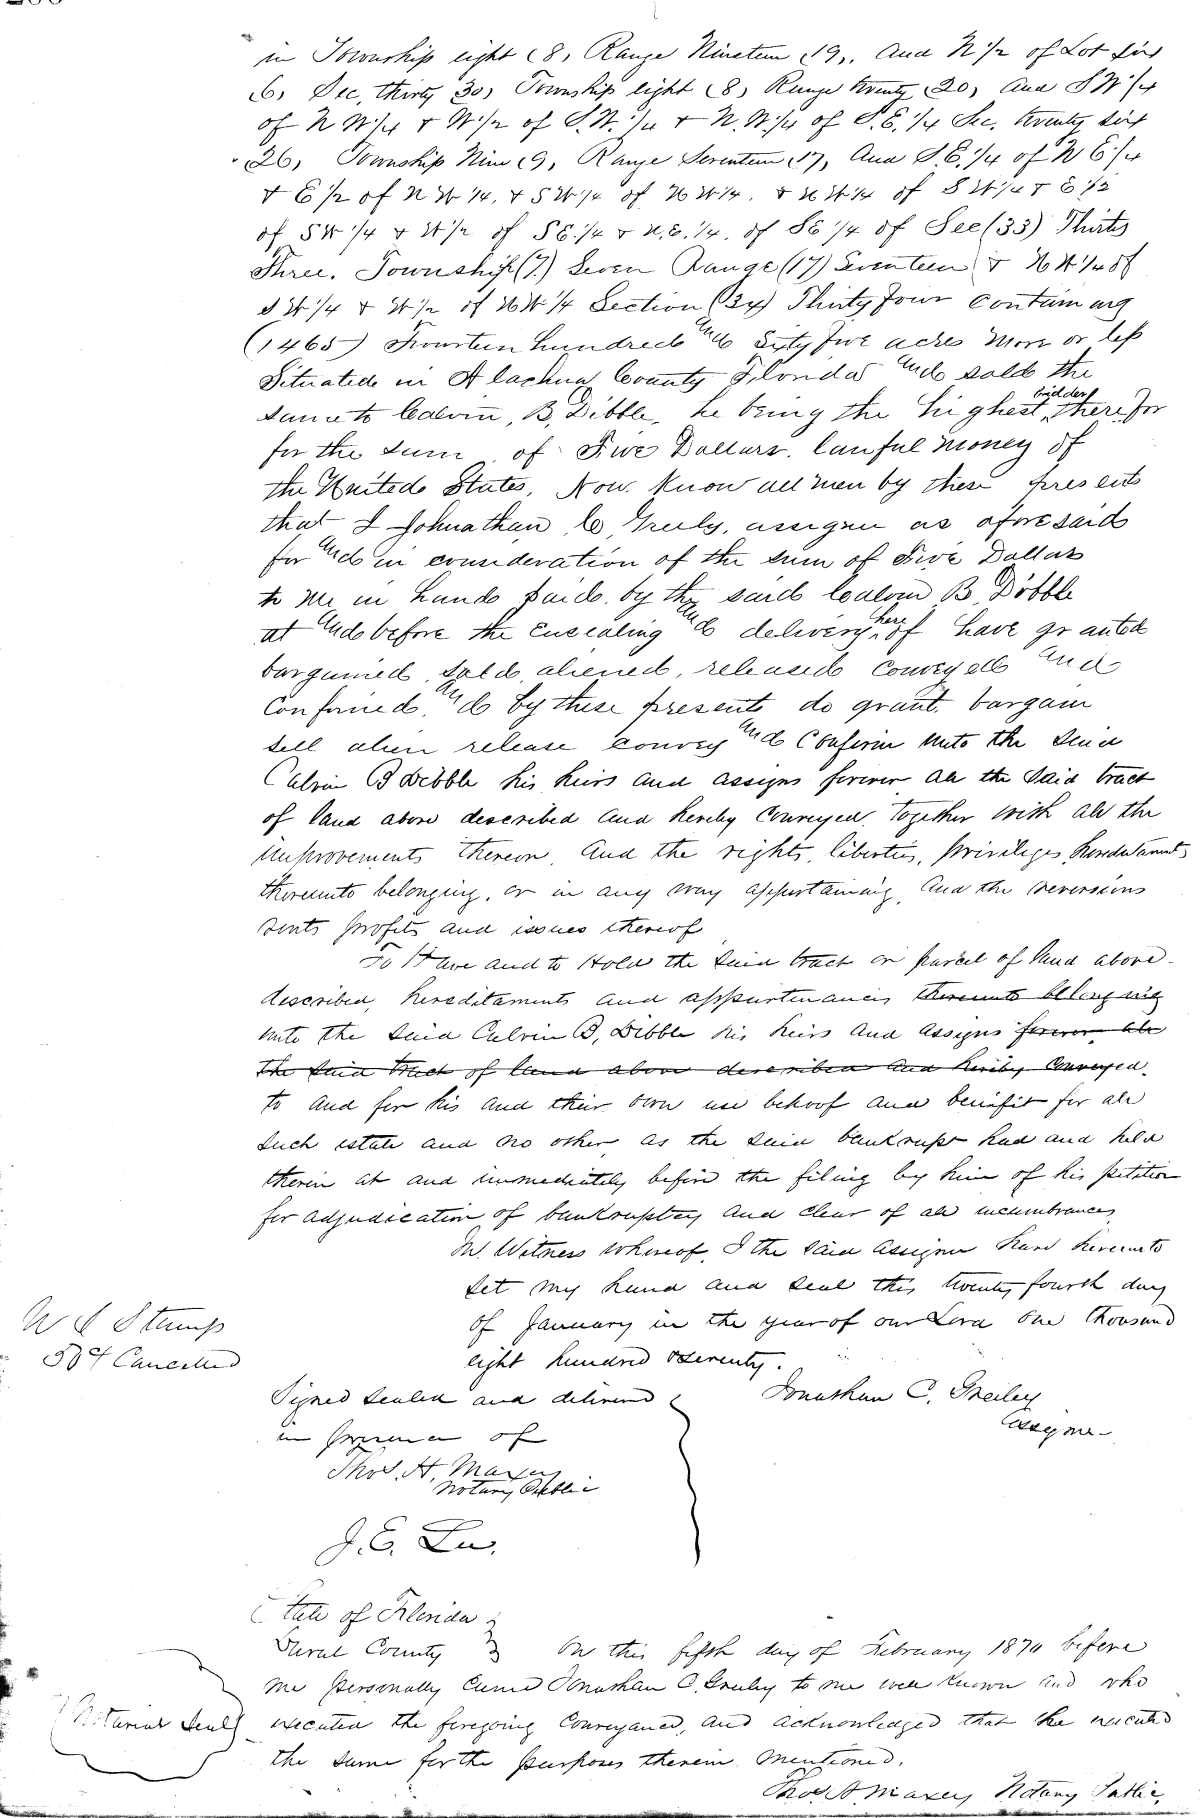 in Township eight (8) Range Nineteen (19), And N 1/2 of Lot six
(6) Sec, thirty 30) Township eight (8) Range twenty (20) And S W 1/4
of N W 1/4 + W 1/2 of S.W. 1/4 + N.W. 1/4 of S.E. 1/4 Sec. twenty six
26, Township Nine (9, Range Seventeen (17), And S.E. 1/4 of N E 1/4
+ E 1/2 of N W 1/4, + S W 1/4 of N W 1/4, + N W 1/4 of S W 1/4 + E 1/2
of S W 1/4 + W 1/2 of S E. 1/4 + N.E. 1/4. of S E 1/4 of Sec (33) Thirty
Three. Township (7.) Seven Range (17) Seventeen + N W 1/4 of
S W 1/4 + W 1/2 of N W 1/4 Section (34) Thirty four Containing
(1465) Fourteen hundred and Sixty five acres more or less
Situated in Alachua County Florida and sold the
same to Calvin, B, Dibble, he being the highest bidder therefor
for the sum of Five Dollars. lawful money of
the United States, Now. Know all men by these presents
that I Johnathan C Greely, assignee as aforesaid
for and in consideration of the sum of Five Dollars
to me in hand paid. by the said Calvin B Dibble
at and before the ensealing and delivery hereof have granted
bargained sold, aliened, released conveyed and
Confirmed, and by these presents do grant, bargain
sell alien release convey and Confirm unto the said
Calvin B Dibble his heirs and assigns forever all the said tract
of land above described and hereby conveyed. together with all the
improvements thereon, And the rights, liberties, privileges, hereditaments
thereunto belonging, or in any way appertaining, And the reversions
rents profits and issues thereof
To Have and to Hold the said tract or parcel of land above-
described, hereditaments and appurtenances thereunto belonging
unto the said Calvin B, Dibble his heirs and assigns forever, all
the said tract of land above described and hereby conveyed.
to and for his and their own use behoof and benefit for all
such estate and no other as the said bankrupt had and held
therein at and immediately before the filing by him of his petition
for adjudication of bankruptcy and clear of all incumbrances
In Witness whereof, I the said assignee have hereunto
set my hand and seal this twenty fourth day
of January in the year of our Lord one thousand
eight hundred + seventy.
Signed sealed and delivered
in presence of
Jonathan C. Greeley
Assignee
Thos. H. Maxey
Notary Public
J. E. Lu.
U S Stamp
50¢ Cancelled
State of Florida
Duval County On this fifth day of February 1870 before
me personally came Jonathan C. Greeley to me well known and who
executed the foregoing conveyance, and acknowledged that he executed
the same for the purposes therein mentioned.
Notarial Seal
Thos H. Maxey Notary Public,